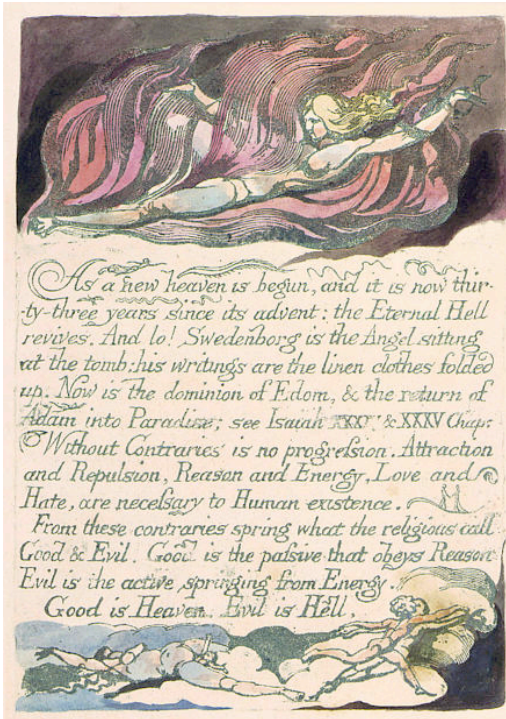 As a new heaven is begun, and it is now thir-
-ty-three years since its advent: the Eternal Hell
revives. And lo! Swedenborg is the Angel sitting
at the tomb: his writings are the linen clothes folded
up. Now is the dominion of Edom, & the return of
Adam into Paradise; see Isaiah XXXIV & XXXV Chap:
Without Contraries is no progreſsion. Attraction
and Repulsion, Reason and Energy, Love and
Hate, are neceſsary to Human existence.
From these contraries spring what the religious call
Good & Evil. Good is the paſsive that obeys Reason
Evil is the active springing from Energy.
Good is Heaven. Evil is Hell.